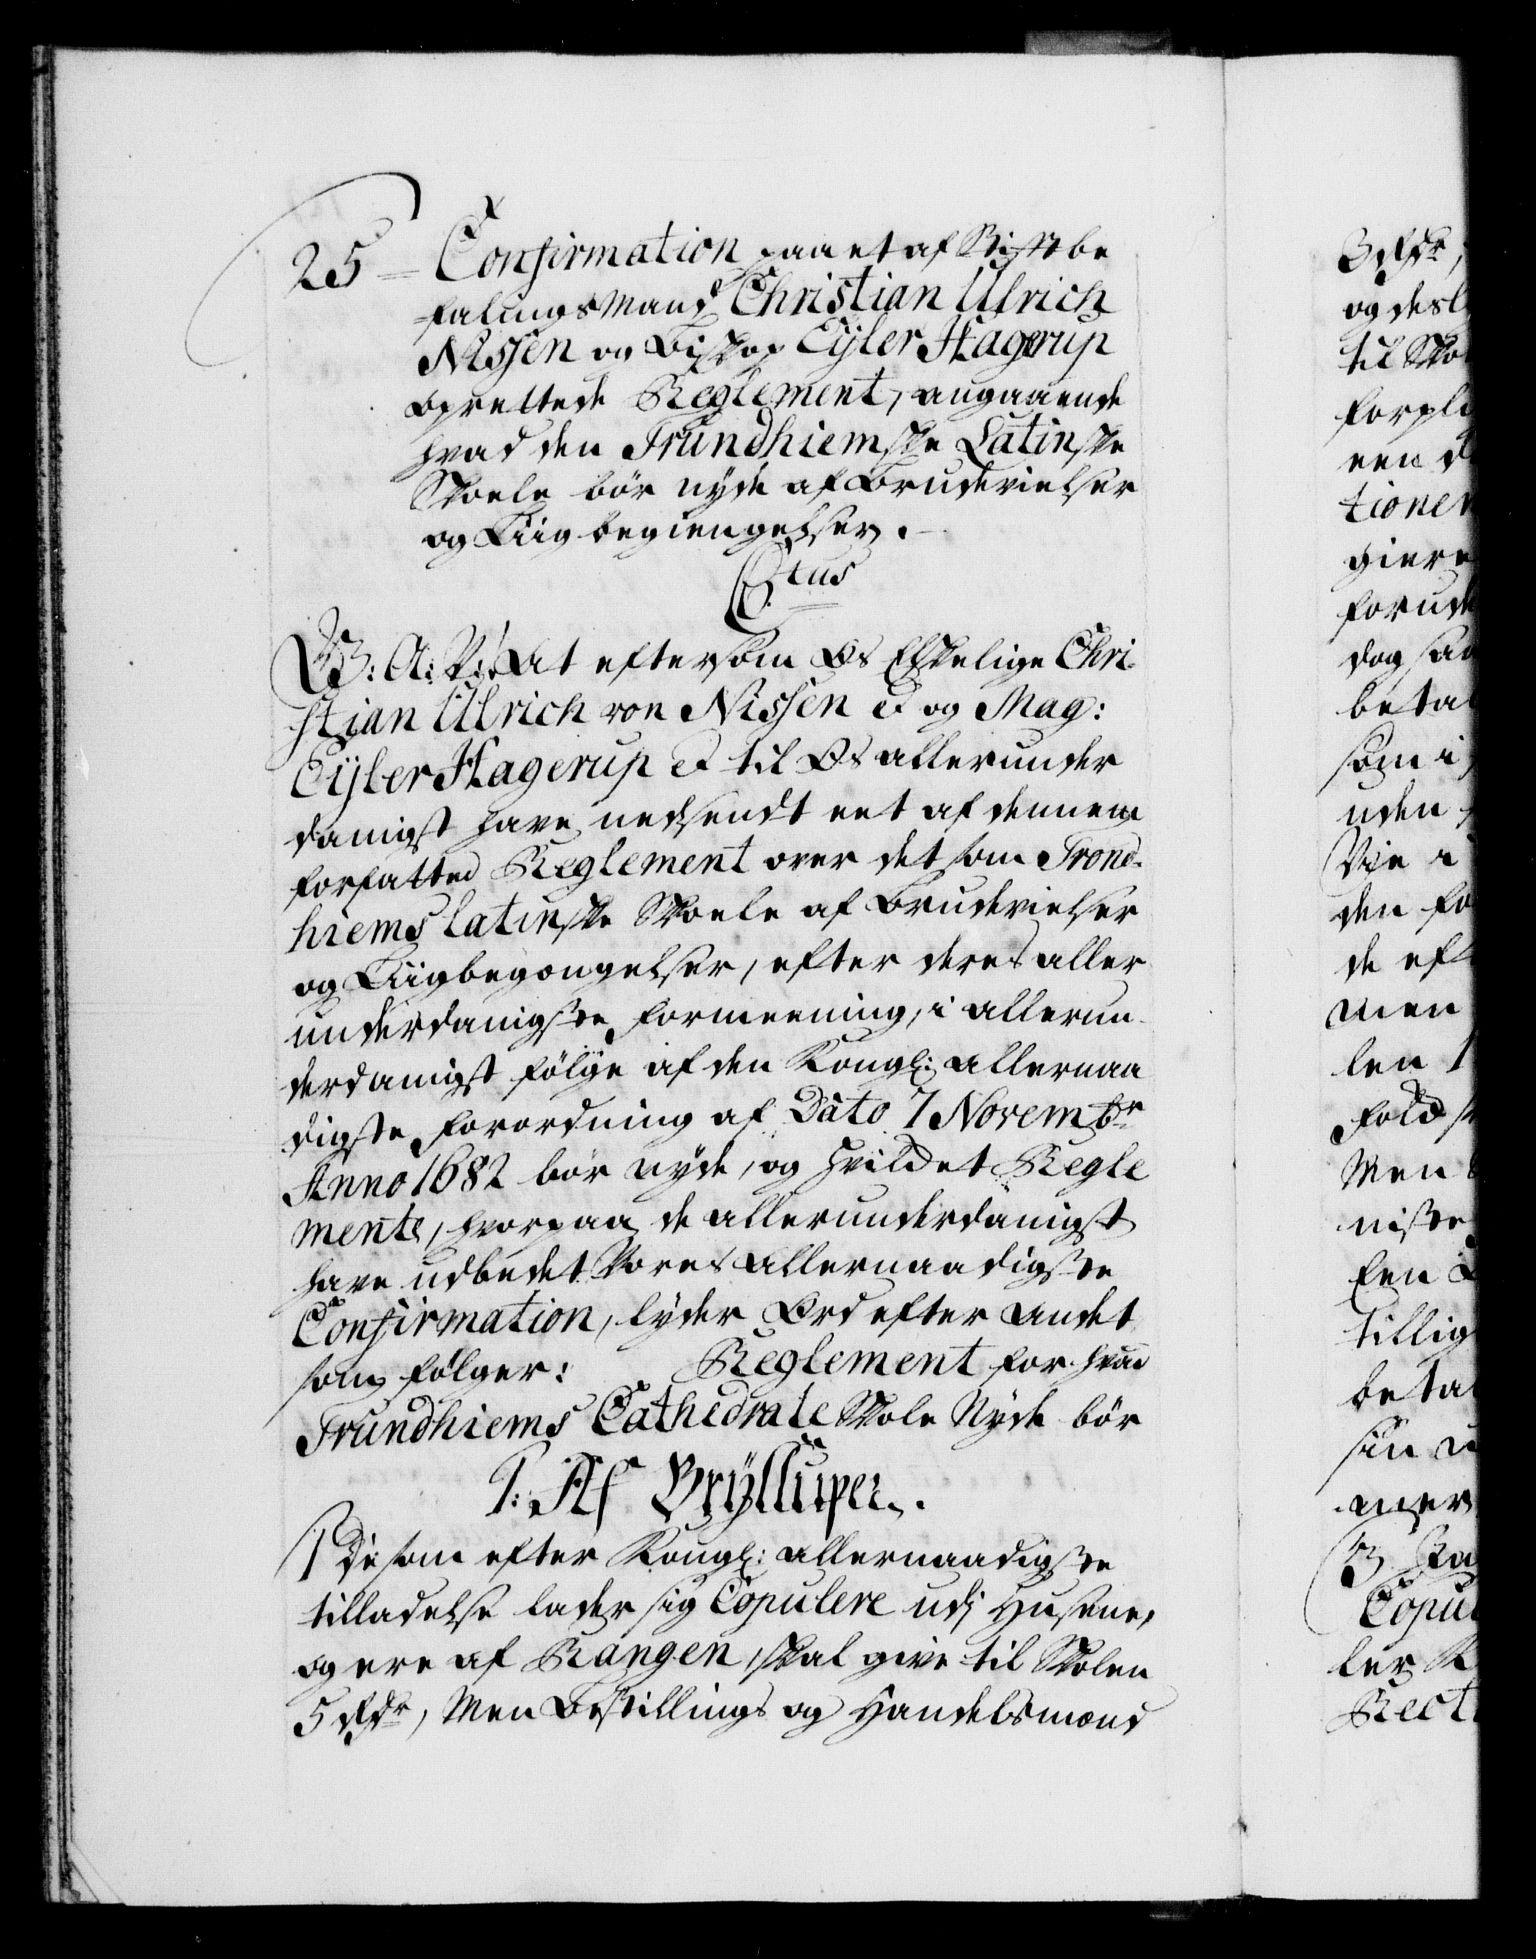 25 = Confirmation paa et af Stiftbe
falingsmand Christian Ulrich
Nissen og Biskop Eyler Hagerup
oprettede Reglement, angaaende
hvad den Trundhiemske Latinske
Skoele bør nyde af Brudevielser
og Liigbegiengelser.
C. 5tus
W: A: V: At eftersom Os Elskelige Chri-
stian Ulrich von Nissen et og Mag:
Eyler Hagerup et til Os allerunder
danigst have nedsendt eet af dennem
forfatted Reglement over det som Trond-
hiems latinske Skoele af Brudevielser
og Liigbegongelser, efter deres aller
underdanigste formeening, i allerun-
derdanigst følge af den Kongl: allernaa
digste forordning af Dato 7 Novembr
Anno 1682 bør nyde, og hvildet Regle
mente, hvorpaa de allerunderdanigst
have udbedet Vores allernaadigste
Confirmation, lyder Ord efter andet
som følger: Reglement for hvad
Trundhiems Cathedrale Skole Nyde bør
1: Af Bryllupper.
1 De som efter Kongl: allernaadigste
tilladelse lader sig Copulere udj Husene,
og ere af Rangen, skal give til Skolen
5 Rdr, Men Bestillings og Handelsmænd
3 Rdr,
og desl
til Sko
forpli
een d
tioner
giere
forud
dog saa
betal
som i
uden
Vie i
den fo
de eft
men
len 1
Fold
Men
niste
Een
tillig
betal
sin
mer
3
Copul
ler
Rect